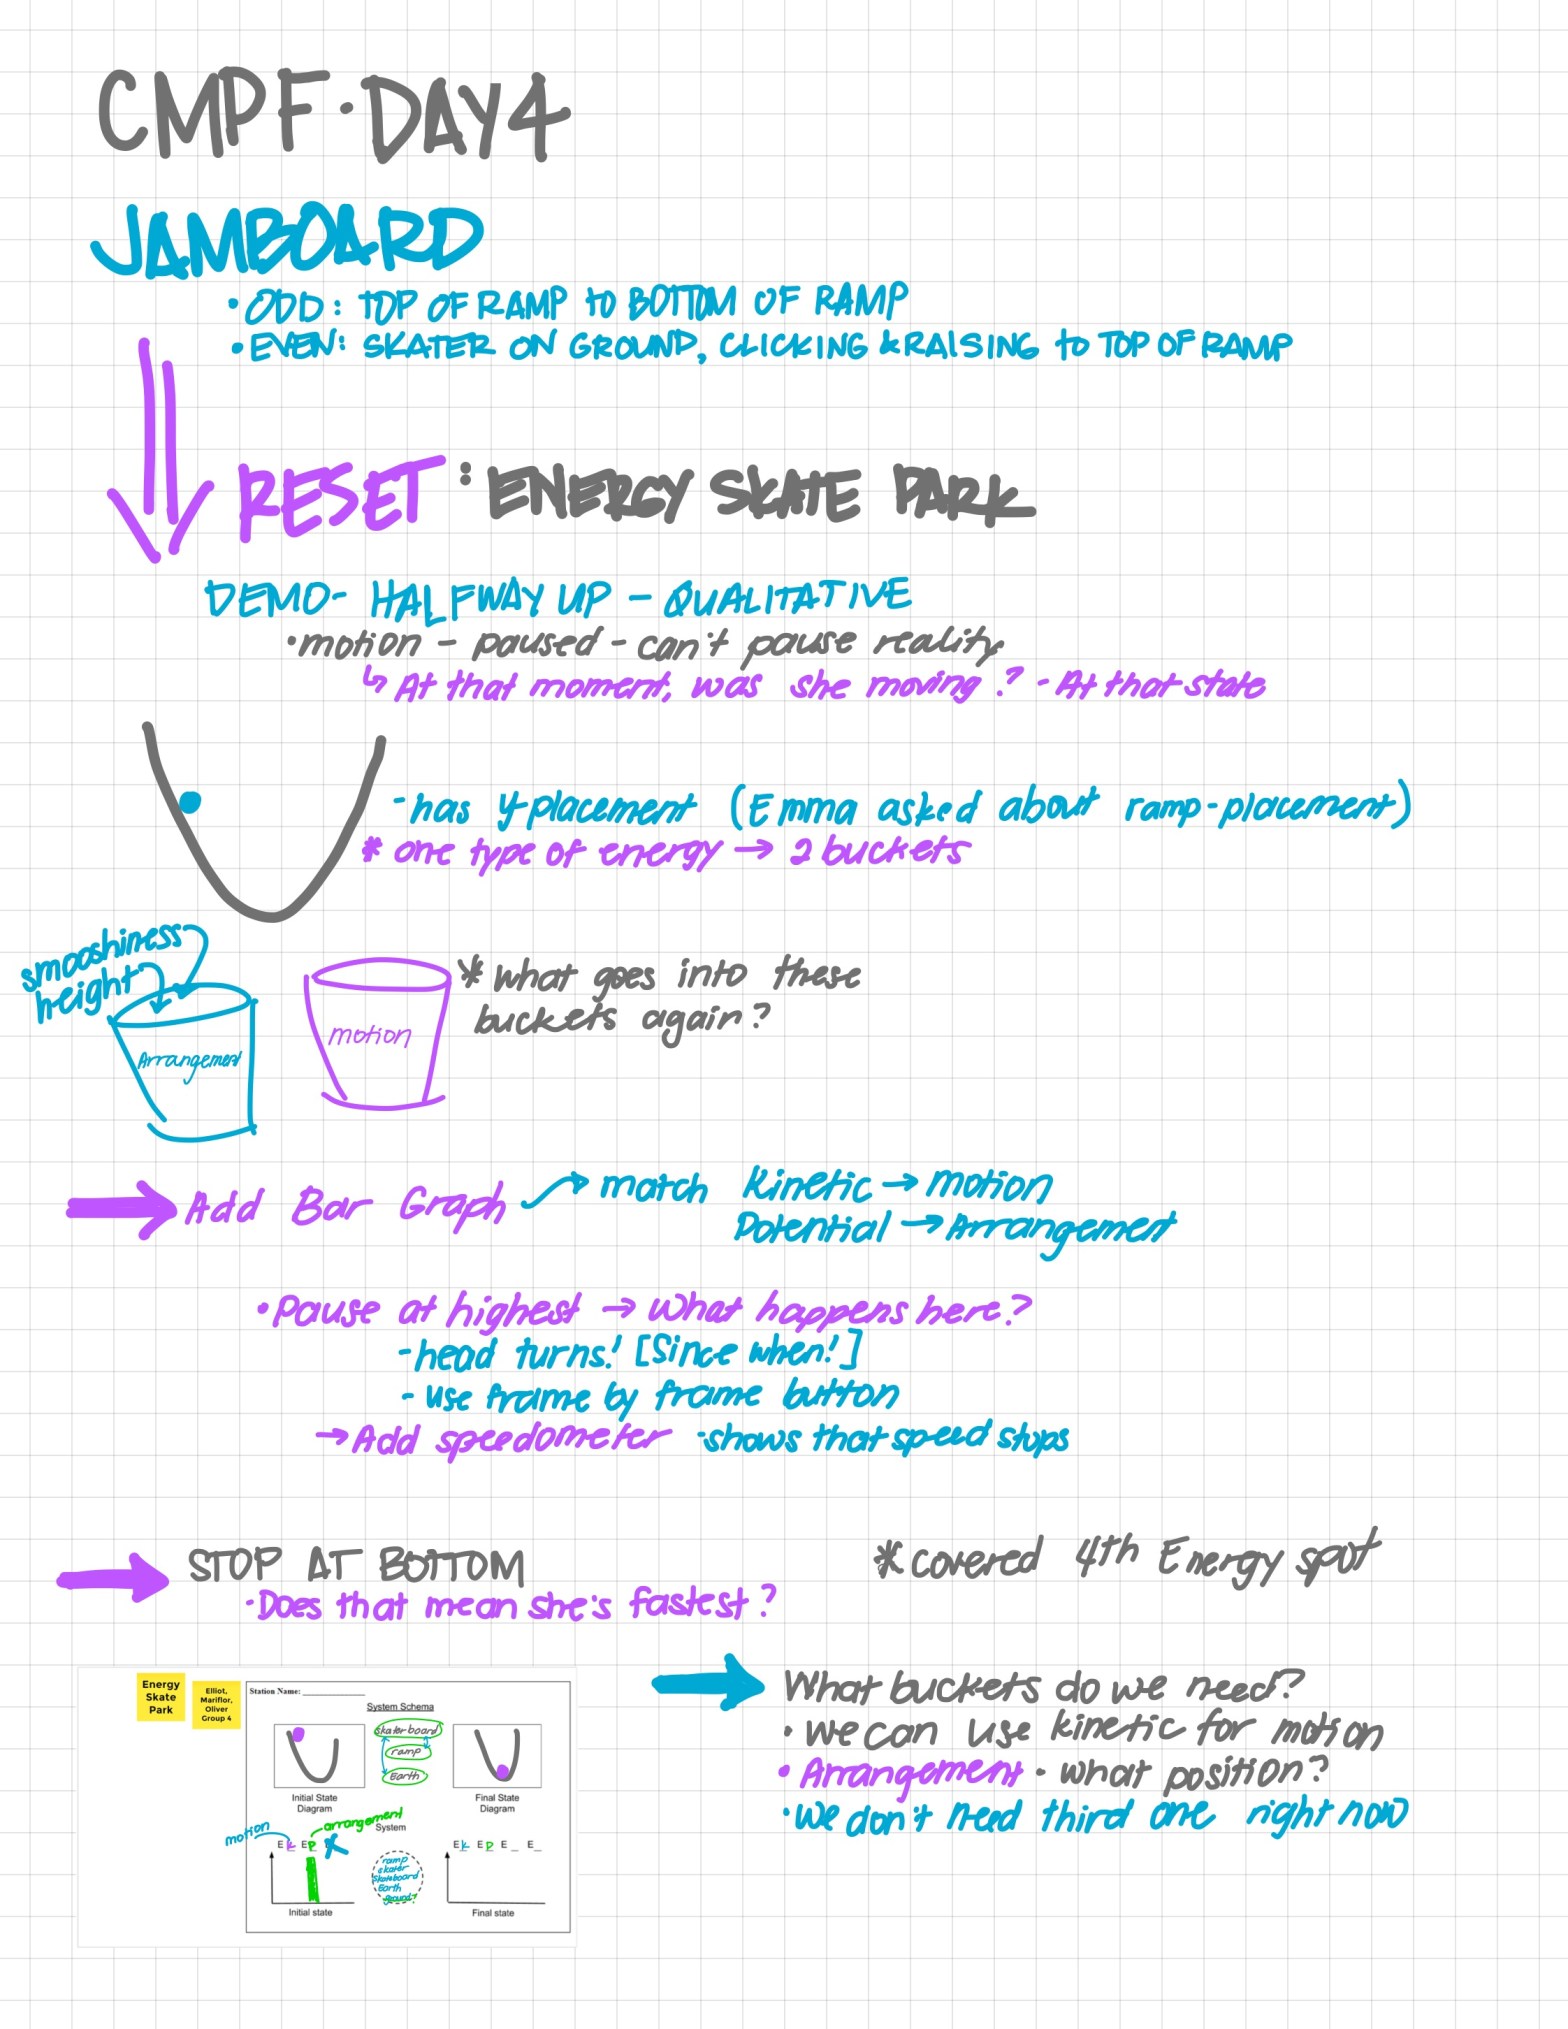 CMPF·DAY4
JAMBOARD
• ODD: TOP OF RAMP to BOTTOM OF RAMP
• EVEN: SKATER ON GROUND, CLICKING & RAISING to TOP OF RAMP
RESET: ENERGY SKATE PARK
DEMO- HALFWAY UP - QUALITATIVE
• motion - paused - can't pause reality
↳ At that moment, was she moving? - At that state
- has y-placement (Emma asked about ramp-placement)
* one type of energy → 2 buckets
smooshiness
height
Arrangement
motion
* what goes into these
buckets again?
Add Bar Graph → match Kinetic → Motion
Potential → Arrangement
• Pause at highest → What happens here?
- head turns! [Since when!]
- use frame by frame button
→ Add speedometer - shows that speed stops
STOP AT BOTTOM
• Does that mean she's fastest?
* covered 4th Energy spot
What buckets do we need?
• we can use kinetic for motion
• Arrangement • what position?
• we don't need third one right now
Energy
Skate
Park
Elliot,
Mariflor,
Oliver
Group 4
Station Name: ____________
System Schema
skaterboard
ramp
Earth
Initial State
Diagram
Final State
Diagram
motion
arrangement
System
E k E p
E k E p E _ E _
ramp
skater
skateboard
Earth
ground?
Initial state
Final state